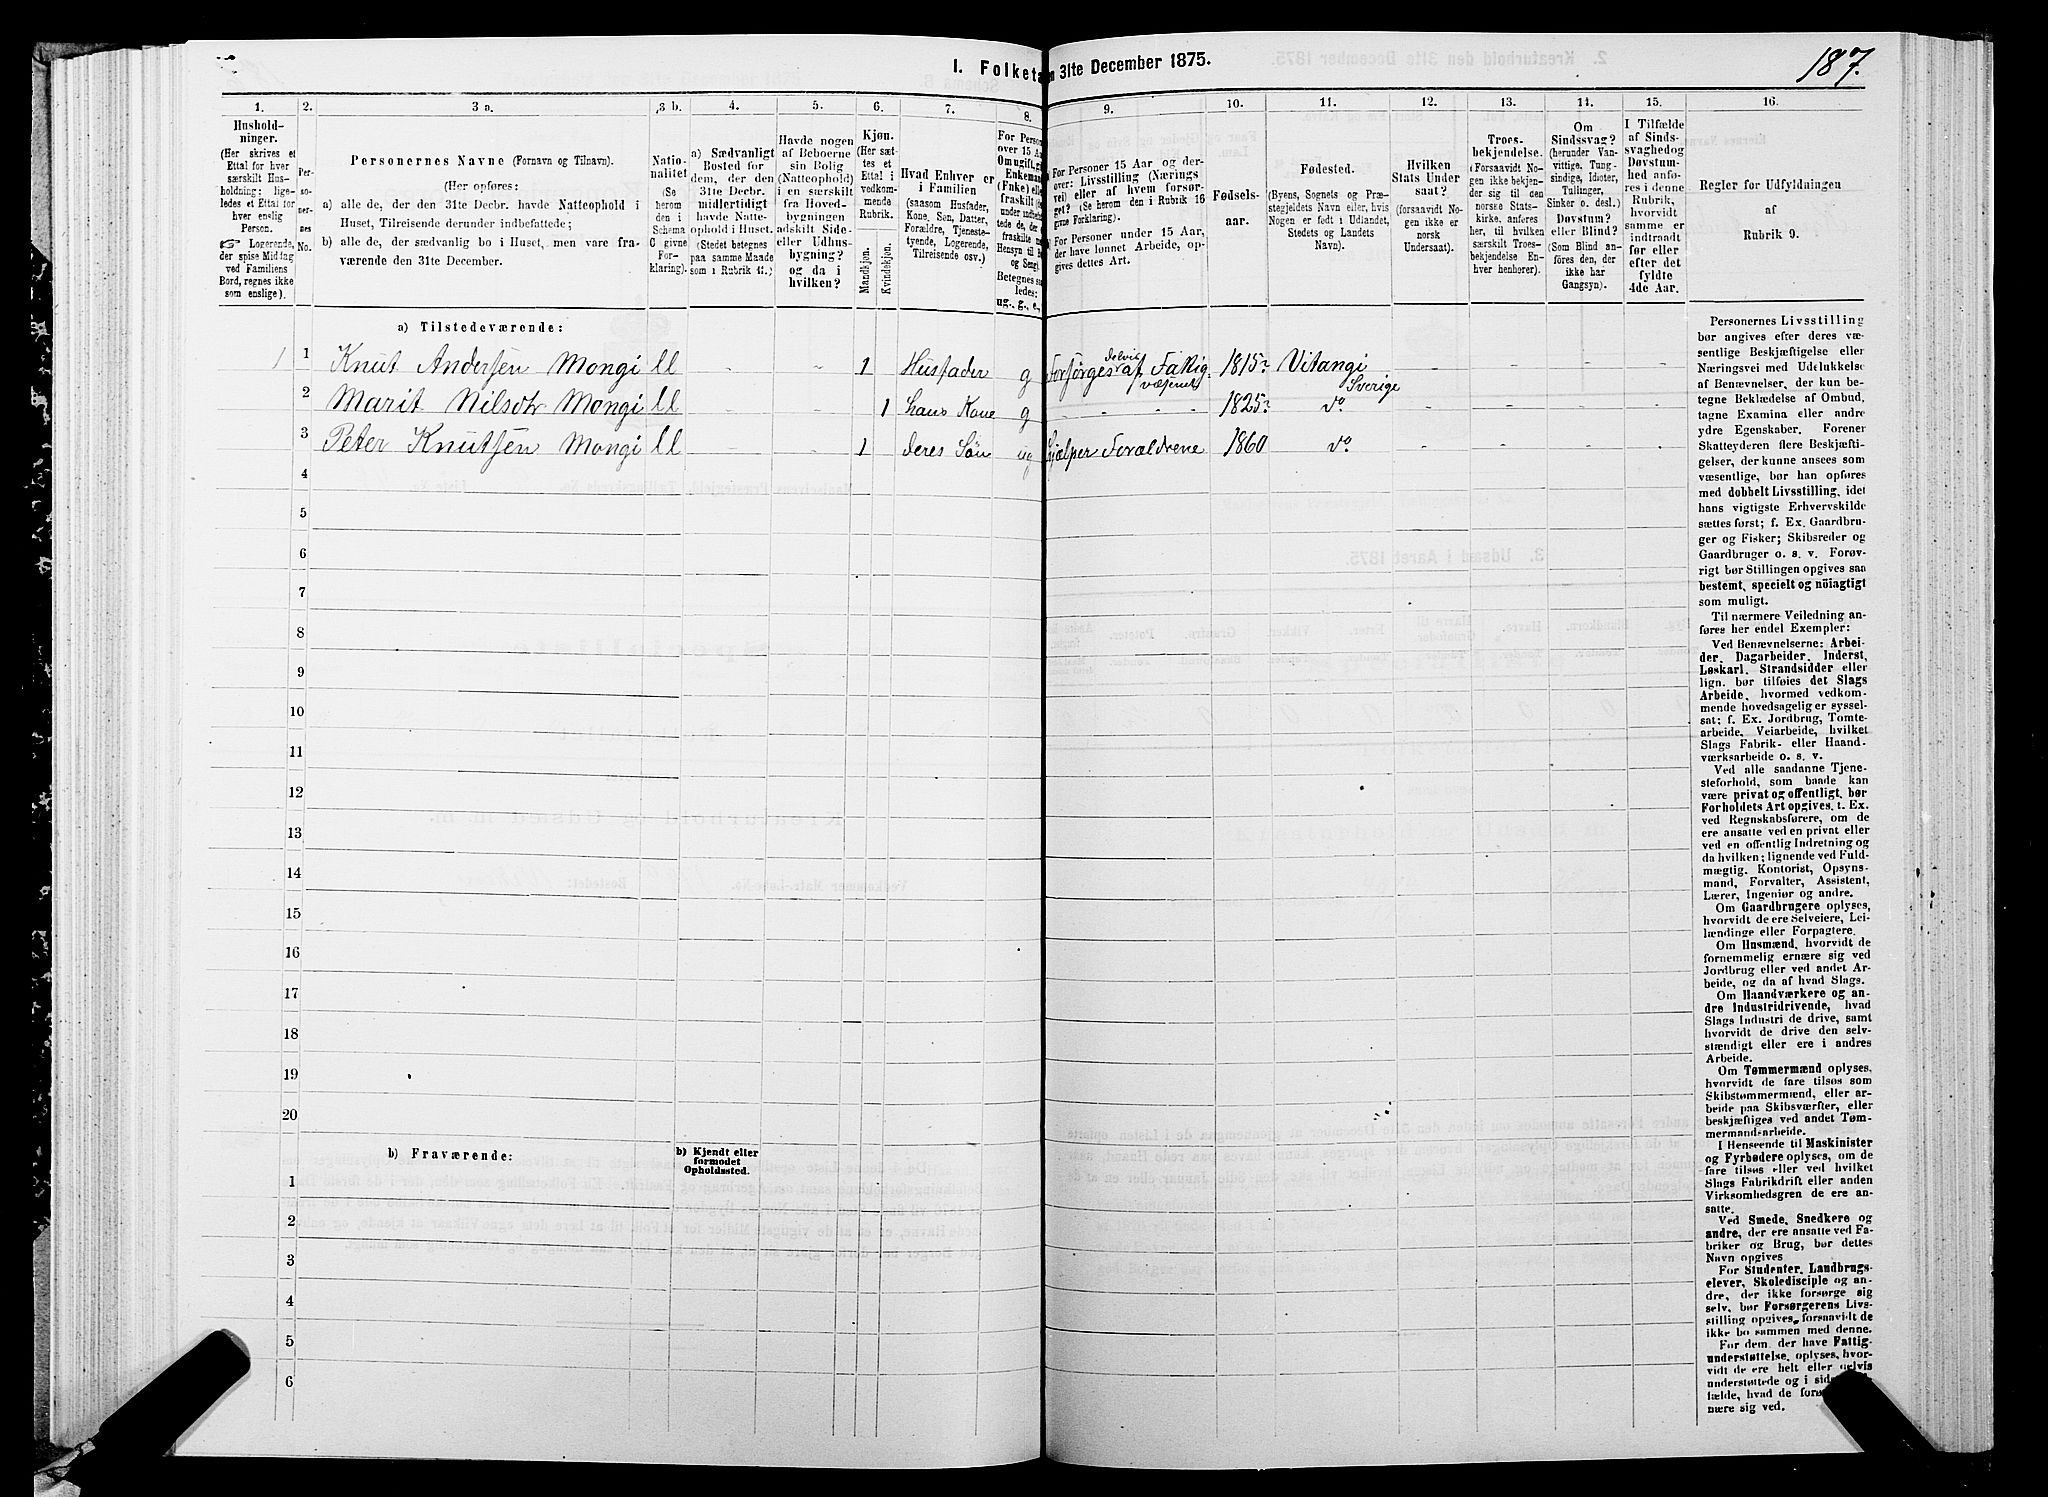 I. Folketa n 31te December 1875.
187.
1.
2.
3 a.
3 b.
4.
5.
6.
7.
8.
9.
10.
11.
12.
13.
14.
15.
16.
Hushold-
ninger.
(Her skrives et
Ettal for hver
særskilt Hus-
holdning; lige-
ledes et Ettal for
hver enslig
Person.
☞ Logerende,
der spise Middag
ved Familiens
Bord, regnes ikke
som enslige).
Per-
so-
ner-
nes
No.
Personernes Navne (Fornavn og Tilnavn).
(Her opføres:
a) alle de, der den 31te Decbr. havde Natteophold i
Huset, Tilreisende derunder indbefattede;
b) alle de, der sædvanlig bo i Huset, men vare fra-
værende den 31te December.
Natio-
nalitet
(Se
herom
den i
Schema
C givne
For-
klaring).
a) Sædvanligt
Bosted for
dem, der den
31te Decbr.
midlertidigt
havde Natte-
ophold i Huset.
(Stedet betegnes
paa samme Maade
som i Rubrik 11.)
Havde nogen
af Beboerne
sin Bolig
(Natteophold)
i en særskilt
fra Hoved-
bygningen
adskilt Side-
eller Udhus-
bygning?
og da i
hvilken?
Kjøn.
(Her sæt-
tes et
Ettal i
vedkom-
mende
Rubrik.
Mandkjøn.
Kvindekjøn.
Hvad Enhver er
i Familien
(saasom Husfader,
Kone, Søn, Datter,
Forældre, Tjeneste-
tyende, Logerende,
Tilreisende osv.)
For Person
over 15 Aa
Om ugift, gi
Enkeman
(Fnke) elle
fraskilt (
under indb
tede de, der
fraskilte
Hensyn til B
og Seng).
Betegnes sa
ledes:
ug., g., e.,
For Personer 15 Aar og der-
over: Livsstilling (Nærings
vei) eller af hvem forsør-
get? (Se herom i Rubrik 16
givne Forklaring.)
For Personer under 15 Aar,
der have lønnet Arbeide, op-
gives dettes Art.
Fødsels-
aar.
Fødested.
(Byens, Sognets og Præ-
stegjeldets Navn eller, hvis
Nogen er født i Udlandet,
Stedets og Landets
Navn).
Hvilken
Stats Under
saat?
(forsaavidt No-
gen ikke er
norsk
Undersaat).
Troes-
bekjendelse.
(Forsaavidt No-
gen ikke bekjen-
der sig til den
norske Stats-
kirke, anføres
her, til hvilken
særskilt Troes-
bekjendelse En-
hver henhører).
Om
Sindssvag?
(herunder Van-
vittige, Tung-
sindige, Idioter,
Tullinger,
Sinker o. desl.)
Døvstum?
eller Blind?
(Som Blind an-
føres den, der
ikke har
Gangsyn).
I Tilfælde
af Sinds-
svaghed og
Døvstum-
hed anfø-
res i denne
Rubrik,
hvorvidt
samme er
indtraadt
før eller
efter det
fyldte
4de Aar.
Regler for Udfyldningen
af
Rubrik 9.
a) Tilstedeværende:
1 1 Knut Andersen Mongi ll - - 1 Husfader g Forsørges delvis af Fattigvæsenet 1815? Vitangi Sverige - - - -
2 Marit Nilsdtr Mongi ll - - 1 hans Kone g - - - 1825? do - - - -
3 Peter Knutsen Mongi ll - - 1 deres Søn ug hjælper Forældrene 1860 do - - - -
4
5
6
7
8
9
10
11
12
13
14
15
16
17
18
19
20
b) Fraværende:
b) Kjendt eller
formodet
Opholdssted.
1
2
3
4
5
6
Personernes Livsstilling
bør angives efter deres væ-
sentlige Beskjæftigelse eller
Næringsvei med Udelukkelse
af Benævnelser, der kun be-
tegne Beklædelse af Ombud,
tagne Examina eller andre
ydre Egenskaber. Forener
Skatteyderen flere Beskjæfti-
gelser, der kunne ansees som
væsentlige, bør han opføres
med dobbelt Livsstilling, idet
hans vigtigste Erhvervskilde
sættes først; f. Ex. Gaardbru-
ger og Fisker; Skibsreder og
Gaardbruger o. s. v. Forøv-
rigt bør Stillingen opgives saa
bestemt, specielt og nöiagtigt
som muligt.
Til nærmere Veiledning an-
føres her endel Exempler:
Ved Benævnelserne: Arbei-
der, Dagarbeider, Inderst,
Løskarl, Strandsidder eller
lign. bør tilføies det Slags
Arbeide, hvormed vedkom-
mende hovedsagelig er syssel-
sat; f. Ex. Jordbrug, Tomte-
arbeide, Veiarbeide, hvilket
Slags Fabrik- eller Haand-
værksarbeide o. s. v.
Ved alle saadanne Tjene-
steforhold, som baade kan
være privat og offentligt, bør
Forholdets Art opgives, t. Ex.
ved Regnskabsførere, om de
ere ansatte ved en privat eller
ved en offentlig Indretning og
da hvilken; lignende ved Fuld-
mægtig, Kontorist, Opsyns-
mand, Forvalter, Assistent,
Lærer, Ingeniør og andre.
Om Gaardbrugere oplyses,
hvorvidt de ere Selveiere, Lei-
lændinge eller Forpagtere.
Om Husmænd, hvorvidt de
fornemmelig ernære sig ved
Jordbrug eller ved andet Ar-
beide, og da af hvad Slags.
Om Haandværkere og an-
dre Industridrivende, hvad
Slags Industri de drive, samt
hvorvidt de drive den selv-
stændigt eller ere i andres
Arbeide.
Om Tømmermænd oplyses,
hvorvidt de fare tilsøs som
Skibstømmermænd, eller ar-
beide paa Skibsværfter, eller
beskjæftiges ved andet Tøm-
mermandsarbeide.
I Henseende til Maskinister
og Fyrbødere oplyses, om de
fare tilsøs eller ved hvilket
Slags Fabrikdrift eller anden
Virksomhedsgren de ere an-
satte.
Ved Smede, Snedkere og
andre, der ere ansatte ved Fa-
briker og Brug, bør dettes
Navn opgives
For Studenter, Landbrugs-
elever, Skoledisciple og an-
dre, der ikke forsørge sig
selv, bør Forsørgerens Livs-
stilling opgives, forsaavidt de
ikke bo sammen med denne.
For dem, der have Fattig-
understøttelse, oplyses, hvor-
vidt de ere helt eller delvis
understøttede og i sid
fælde, hvad de for
nære sig ved.